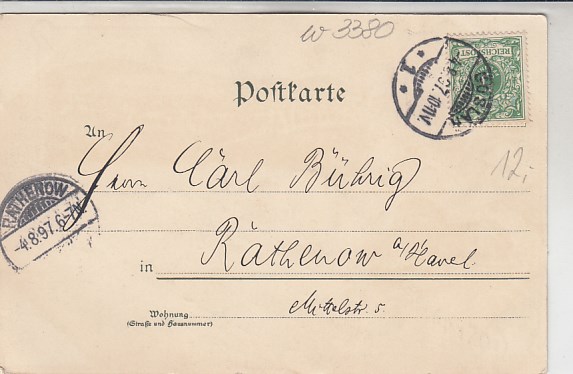 w 3380
REICHSPOST
GOSLAR
* 1 *
4.8.97.10-11V.
Postkarte
12,-
An
Herrn Carl Bührig
RATHENOW
-4.8.97.6-7N.
in Rathenow a/Havel.
Mittelstr. 5.
Wohnung
(Straße und Hausnummer)